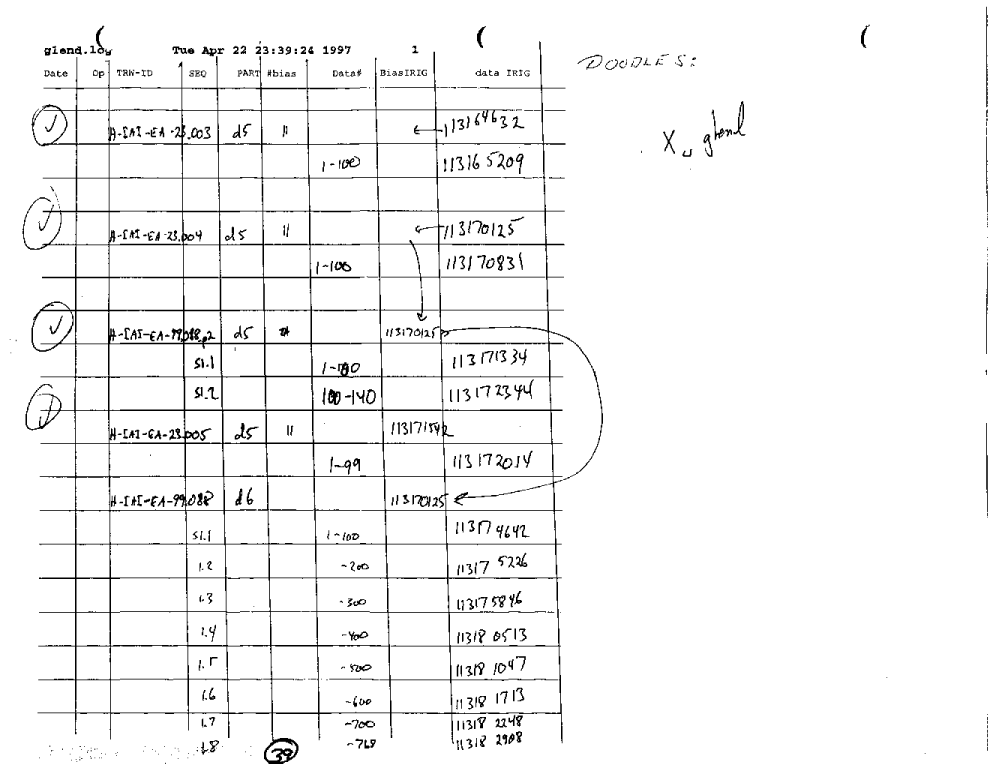 glend.log Tue Apr 22 23:39:24 1997 1
DOODLES:
Date Op TRW-ID SEQ PART #bias Data# BiasIRIG data IRIG
H-IAI-EA-23.003 d5 11 113164632
1-100 113165209
H-IAI-EA-23.004 d5 11 113170125
1-100 113170831
H-IAI-EA-99.088 d5 113170125
S1.1 1-100 113171334
S1.2 100-140 113172344
H-IAI-EA-23.005 d5 11 113171542
1-99 113172014
H-IAI-EA-99.088 d6 113170125
S1.1 1-100 113174642
1.2 -200 113175226
1.3 -300 113175846
1.4 -400 113180513
1.5 -500 113181047
1.6 -600 113181713
1.7 -700 113182248
1.8 -768 113182908
39